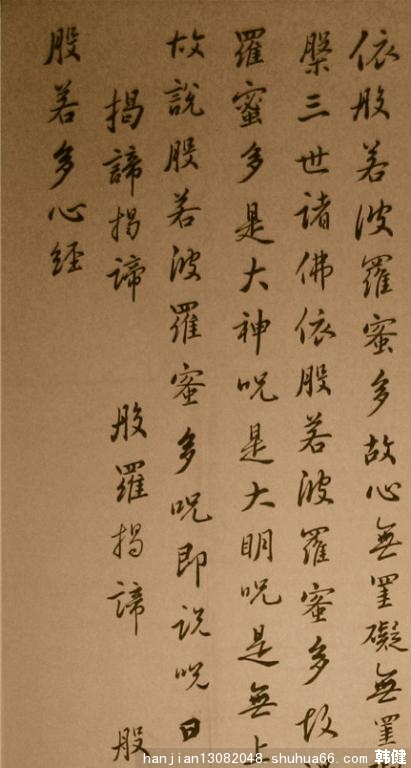 依般若波羅蜜多故心無罣礙無罣
槃三世諸佛依般若波羅蜜多故
羅蜜多是大神咒是大明咒是無上
故說般若波羅蜜多咒即說咒曰
揭諦揭諦 般羅揭諦 般
般若多心經
hanjian13082048.shuhua66.com 韩健